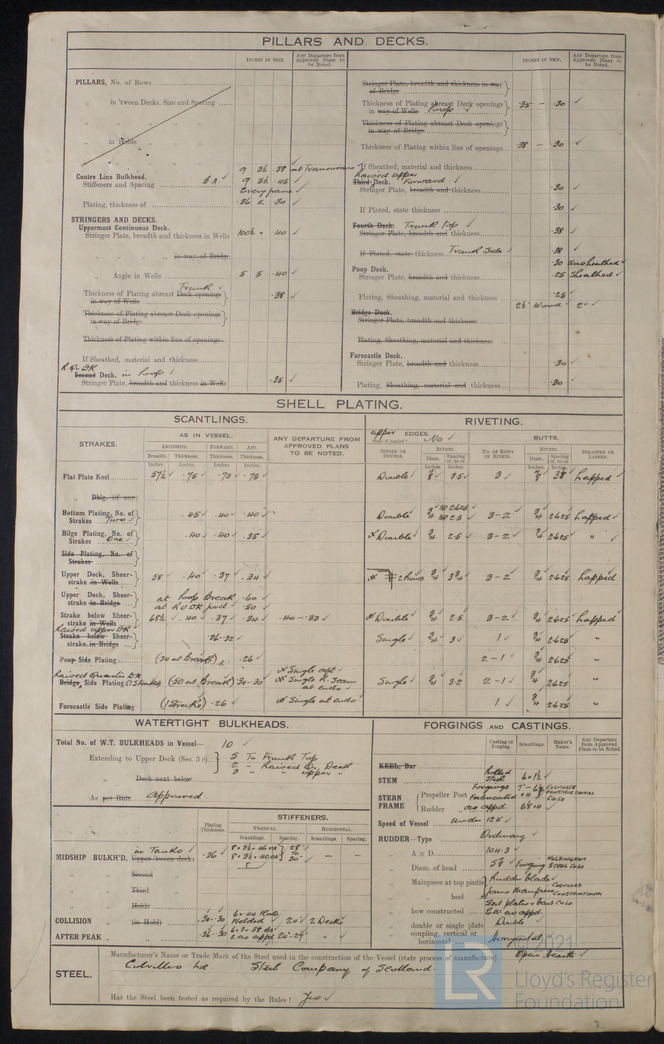 PILLARS AND DECKS.
INCHES IN SHIP.
Any Departure from Approved Plans to be Noted.
INCHES IN SHIP.
Any Departure from Approved Plans to be Noted.
PILLARS, No. of Rows
„ in 'tween Decks, Size and Spacing
„ „ in Holds
Centre Line Bulkhead.
Stiffeners and Spacing B.A. 9 3½ .38 at Transverses
9 3½ .45
Every frame
Plating, thickness of .26 & .30
STRINGERS AND DECKS.
Uppermost Continuous Deck.
Stringer Plate, breadth and thickness in Wells 100½ .40
„ „ in way of Bridge
Angle in Wells 5 5 .40
Trunk
Thickness of Plating abreast Deck openings in way of Wells .38
Thickness of Plating abreast Deck openings in way of Bridge
Thickness of Plating within line of openings
If Sheathed, material and thickness
R. Qr. DK
Second Deck. in Poop
Stringer Plate, breadth and thickness in Wells .35
Stringer Plate, breadth and thickness in way of Bridge
Thickness of Plating abreast Deck openings in way of Wells Poop .35 - .30
Thickness of Plating abreast Deck openings in way of Bridge
Thickness of Plating within line of openings .38 - .30
If Sheathed, material and thickness
Raised upper
Third Deck. Forward
Stringer Plate, breadth and thickness .30
If Plated, state thickness .30
Fourth Deck. Trunk Top
Stringer Plate, breadth and thickness .38
If Plated, state thickness Trunk Side .38
Poop Deck. .30 Unsheathed
Stringer Plate, breadth and thickness .25 Sheathed
Plating, Sheathing, material and thickness .25
2½" Wood 2"
Bridge Deck.
Stringer Plate, breadth and thickness
Plating, Sheathing, material and thickness
Forecastle Deck.
Stringer Plate, breadth and thickness .30
Plating, Sheathing, material and thickness .30
SHELL PLATING.
SCANTLINGS.
RIVETING.
STRAKES.
AS IN VESSEL.
AMIDSHIPS. FORWARD. AFT.
Breadth. Thickness. Thickness. Thickness.
Inches. Inches. Inches. Inches.
ANY DEPARTURE FROM APPROVED PLANS TO BE NOTED.
upper EDGES. No
BUTTS.
SINGLE OR DOUBLE.
RIVETS.
Diam. Spacing cr. to cr.
NO. OF ROWS OF RIVETS.
RIVETS.
Diam. Spacing cr. to cr.
STRAPPED OR LAPPED.
Flat Plate Keel 57½ .75 .75 .75 Double ⅞ 3.5 3 ⅞ 3⅜ Lapped
„ Dblg. (if any)
Bottom Plating, No. of Strakes Two .45 .40 .40 Double ¾ 2.625 2.5 3-2 ¾ 2.625 Lapped
Bilge Plating, No. of Strakes One .40 .40 .35 Double ¾ 2.5 3-2 ¾ 2.625 „
Side Plating, No. of Strakes
Upper Deck, Sheerstrake in Wells 58 .40 .37 .34 3-2 ¾ 2.625 Lapped
Upper Deck, Sheerstrake in Bridge at Poop Break .60
at R.U.DK fwd .50
Strake below Sheerstrake in Wells .40 .37 .34 .40 - .33 Double ¾ 2.5 3-2 ¾ 2.625 Lapped
Raised upper DK
Strake below Sheerstrake in Bridge .26-.32 Single ¾ 3 1 ¾ 2.625 „
Poop Side Plating (.34 at break) .26 2-1 ¾ 2.625 „
Raised Quarter DK
Bridge Side Plating (1 Strake) (.50 at Break) .34-.30 Single ¾ 3.2 2-1 ¾ 2.625 „
Single aft
Single R. Seam at ends
Forecastle Side Plating (1 Strake) .26 Single at ends 1 ¾ 2.625 „
WATERTIGHT BULKHEADS.
Total No. of W.T. BULKHEADS in Vessel— 10
Extending to Upper Deck (Sec. 3 c) 5 To Trunk Top
2 - Raised Qr. Deck
3 „ upper „
„ Deck next below
As per Rule approved
STIFFENERS.
Plating Thickness.
VERTICAL.
HORIZONTAL.
Scantlings. Spacing. Scantlings. Spacing.
MIDSHIP BULKH'D, in Tanks Upper 'tween decks .36 8 × 3½ × .46 BA 28" To 30" - -
8 × 3½ × .40 BA
„ „ Second
„ „ Third
„ „ Holds
COLLISION „ (in Hold) .30-.30 6 × .44 Flats Welded 24 2 Decks
AFTER PEAK „ „ .36-.30 24-29
FORGINGS AND CASTINGS.
Casting or Forging.
Scantlings.
Maker's Name.
Any Departure from Approved Plans to be Noted.
KEEL, Bar
STEM Rolled Steel 6 × 1½
STERN FRAME
Propeller Post Forgings Fabricated Colvilles Constructional Co Ld
Rudder „ as appd 6⅝ × 4
Speed of Vessel Under 12K
RUDDER—Type Ordinary
„ A × D 104.3
„ Diam. of head 5⅞ Forging Wolsingham Steel Co Ld
„ Mainpiece at top pintle Rudder blade
„ „ heel forms Mainpiece Colvilles Constructional Co Ld
„ how constructed EW as appd
„ double or single plate Double
„ coupling, vertical or horizontal Horizontal
STEEL.
Manufacturer's Name or Trade Mark of the Steel used in the construction of the Vessel (state process of manufacture) Open Hearth
Colvilles Ld Steel Company of Scotland
Has the Steel been tested as required by the Rules? Yes
LR
Lloyd's Register
Foundation